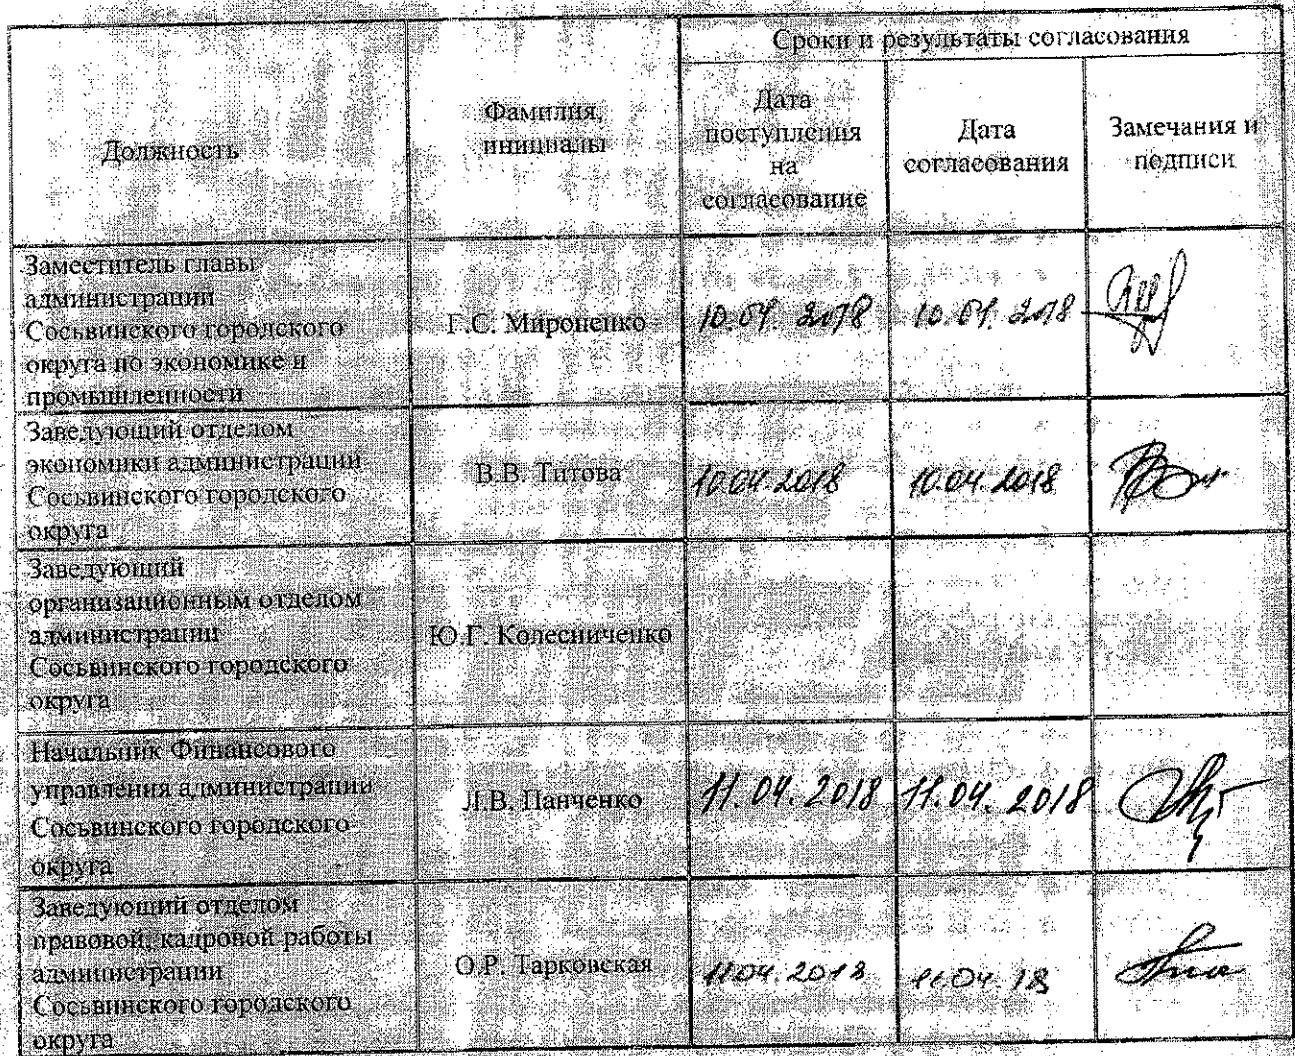 Сроки и результаты согласования
Должность
Фамилия,
инициалы
Дата
поступления
на
согласование
Дата
согласования
Замечания и
подписи
Заместитель главы
администрации
Сосьвинского городского
округа по экономике и
промышленности
Г.С. Мироненко
10.04.2018
10.04.2018
Заведующий отделом
экономики администрации
Сосьвинского городского
округа
В.В. Титова
10.04.2018
10.04.2018
Заведующий
организационным отделом
администрации
Сосьвинского городского
округа
Ю.Г. Колесниченко
Начальник Финансового
управления администрации
Сосьвинского городского
округа
Л.В. Панченко
11.04.2018
11.04.2018
Заведующий отделом
правовой, кадровой работы
администрации
Сосьвинского городского
округа
О.Р. Тарковская
11.04.2018
11.04.18